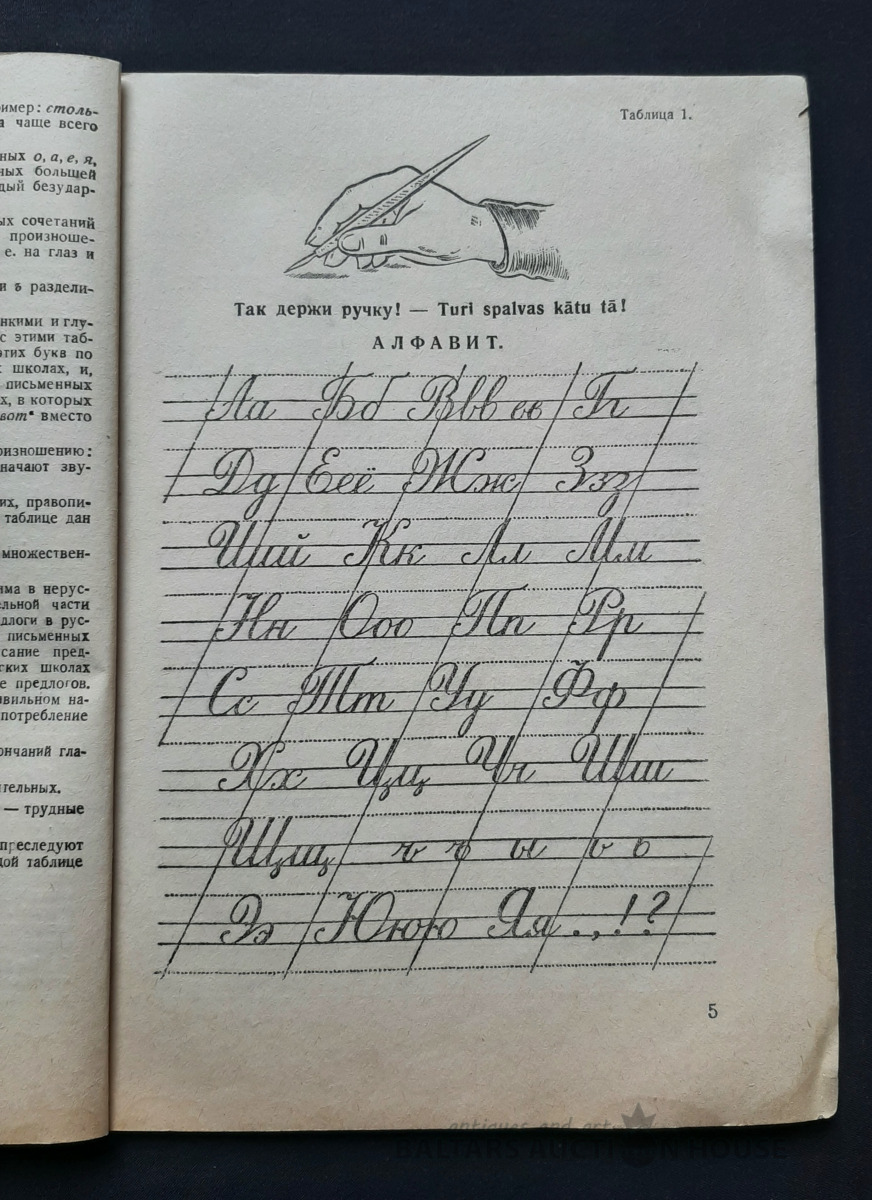 ример: столь-
а чаще всего
ных о, а, е, я,
ных большей
дый безудар-
ых сочетаний
произноше-
е. на глаз и
и ъ раздели-
нкими и глу-
с этими таб-
этих букв по
школах, и,
письменных
х, в которых
вот" вместо
оизношению:
начают зву-
их, правопи-
таблице дан
множествен-
има в нерус-
ельной части
длоги в рус-
письменных
сание пред-
ских школах
е предлогов.
авильном на-
потребление
ончаний гла-
гельных.
— трудные
преследуют
дой таблице
Таблица 1.
Так держи ручку! — Turi spalvas kātu tā!
АЛФАВИТ.
Аа БбВвв вв Гг
ДдЕеё Жж Ззз
Ииий Кк Лл Мм
Нн Ооо Пп Рр
Сс Тт Уу Фф
Хх Цц Чч Шш
Щщ ъ ъ ы ь ь
Ээ Ююю Яя . , ! ?
5
antiques and art
BALTARS AUCTION HOUSE